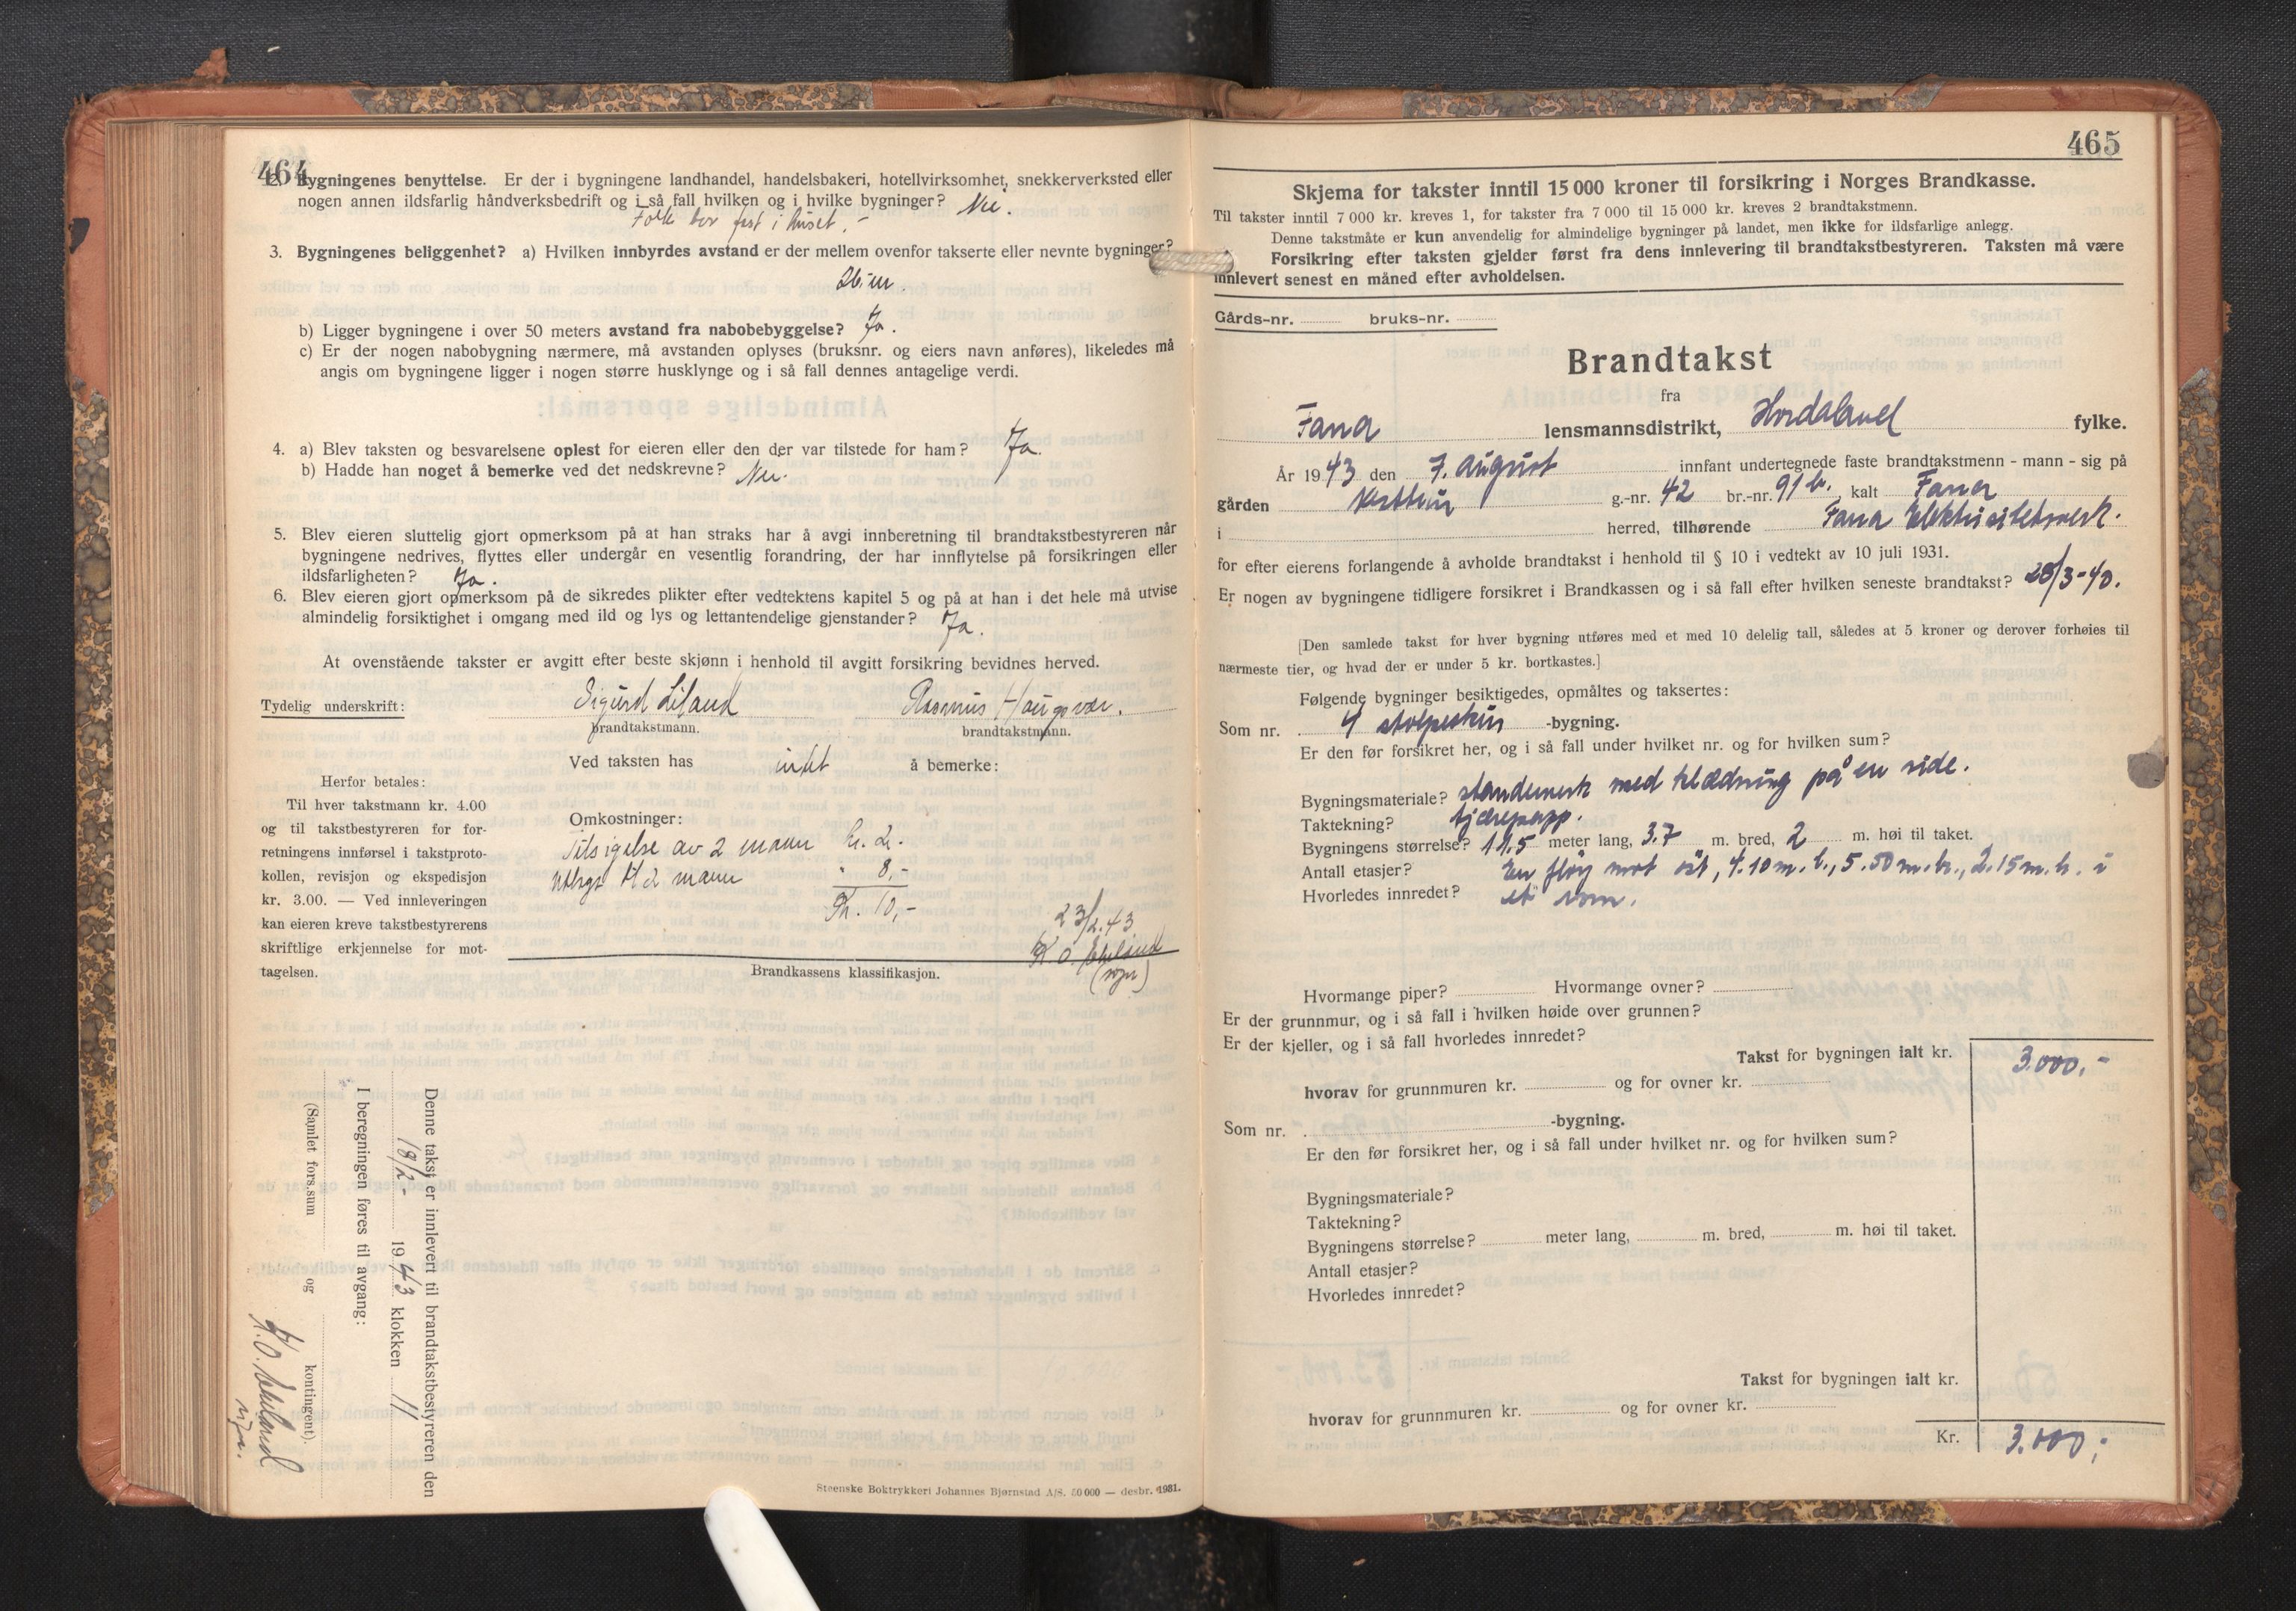 464
2. Bygningenes benyttelse. Er der i bygningene landhandel, handelsbakeri, hotellvirksomhet, snekkerverksted eller
nogen annen ildsfarlig håndverksbedrift og i så fall hvilken og i hvilke bygninger? Nei.
Folk bor fast i huset.-
3. Bygningenes beliggenhet? a) Hvilken innbyrdes avstand er der mellem ovenfor takserte eller nevnte bygninger?
26 m.
b) Ligger bygningene i over 50 meters avstand fra nabobebyggelse? Ja.
c) Er der nogen nabobygning nærmere, må avstanden oplyses (bruksnr. og eiers navn anføres), likeledes må
angis om bygningene ligger i nogen større husklynge og i så fall dennes antagelige verdi.
4. a) Blev taksten og besvarelsene oplest for eieren eller den der var tilstede for ham? Ja.
b) Hadde han noget å bemerke ved det nedskrevne? Nei.
5. Blev eieren sluttelig gjort opmerksom på at han straks har å avgi innberetning til brandtakstbestyreren når
bygningene nedrives, flyttes eller undergår en vesentlig forandring, der har innflytelse på forsikringen eller
ildsfarligheten? Ja.
6. Blev eieren gjort opmerksom på de sikredes plikter efter vedtektens kapitel 5 og på at han i det hele må utvise
almindelig forsiktighet i omgang med ild og lys og lettantendelige gjenstander? Ja.
At ovenstående takster er avgitt efter beste skjønn i henhold til avgitt forsikring bevidnes herved.
Tydelig underskrift: Sigurd Liland Rasmus Haugsvær.
brandtakstmann. brandtakstmann.
Ved taksten has intet å bemerke:
Herfor betales:
Til hver takstmann kr. 4.00
og til takstbestyreren for for-
retningens innførsel i takstproto-
kollen, revisjon og ekspedisjon
kr. 3.00. — Ved innleveringen
kan eieren kreve takstbestyrerens
skriftlige erkjennelse for mot-
tagelsen.
Omkostninger:
Tilsigelse av 2 mann kr. 2.
Utlagt til 2 mann " 8,-
Kr. 10,-
23/2.43
K. O.
(sign)
Brandkassens klassifikasjon.
Denne takst er innlevert til brandtakstbestyreren den
18/2- 1943 klokken 11
I beregningen føres til avgang:
(Samlet fors.sum og kontingent).
K. O.
sign.
Steenske Boktrykkeri Johannes Bjørnstad A/S. 50 000 — desbr. 1931.
465
Skjema for takster inntil 15 000 kroner til forsikring i Norges Brandkasse.
Til takster inntil 7 000 kr. kreves 1, for takster fra 7 000 til 15 000 kr. kreves 2 brandtakstmenn.
Denne takstmåte er kun anvendelig for almindelige bygninger på landet, men ikke for ildsfarlige anlegg.
Forsikring efter taksten gjelder først fra dens innlevering til brandtakstbestyreren. Taksten må være
innlevert senest en måned efter avholdelsen.
Gårds-nr. bruks-nr.
Brandtakst
fra
Fana lensmannsdistrikt, Hordaland fylke.
År 1943 den 7. August innfant undertegnede faste brandtakstmenn - mann - sig på
gården g.-nr. 42 br.-nr. 91 b. , kalt Fana
i herred, tilhørende Fana Elektrisitetsverk.
for efter eierens forlangende å avholde brandtakst i henhold til § 10 i vedtekt av 10 juli 1931.
Er nogen av bygningene tidligere forsikret i Brandkassen og i så fall efter hvilken seneste brandtakst? 28/3-40.
[Den samlede takst for hver bygning utføres med et med 10 delelig tall, således at 5 kroner og derover forhøies til
nærmeste tier, og hvad der er under 5 kr. bortkastes.]
Følgende bygninger besiktigedes, opmåltes og taksertes:
Som nr. 4 stolpeskur -bygning.
Er den før forsikret her, og i så fall under hvilket nr. og for hvilken sum?
Bygningsmateriale? standerverk med klædning på en side.
Taktekning? tjærepapp.
Bygningens størrelse? 11.5 meter lang, 3.7 m. bred, 2 m. høi til taket.
Antall etasjer? En fløy mot øst, 4.10 m. l., 5.50 m. br., 2.15 m. h. i
Hvorledes innredet? et rom.
Hvormange piper? Hvormange ovner?
Er der grunnmur, og i så fall i hvilken høide over grunnen?
Er der kjeller, og i så fall hvorledes innredet?
Takst for bygningen ialt kr. 3.000,-
hvorav for grunnmuren kr. og for ovner kr.
Som nr. -bygning.
Er den før forsikret her, og i så fall under hvilket nr. og for hvilken sum?
Bygningsmateriale?
Taktekning?
Bygningens størrelse? meter lang, m. bred, m. høi til taket.
Antall etasjer?
Hvorledes innredet?
Takst for bygningen ialt kr.
hvorav for grunnmuren kr. og for ovner kr.
Kr. 3.000,-